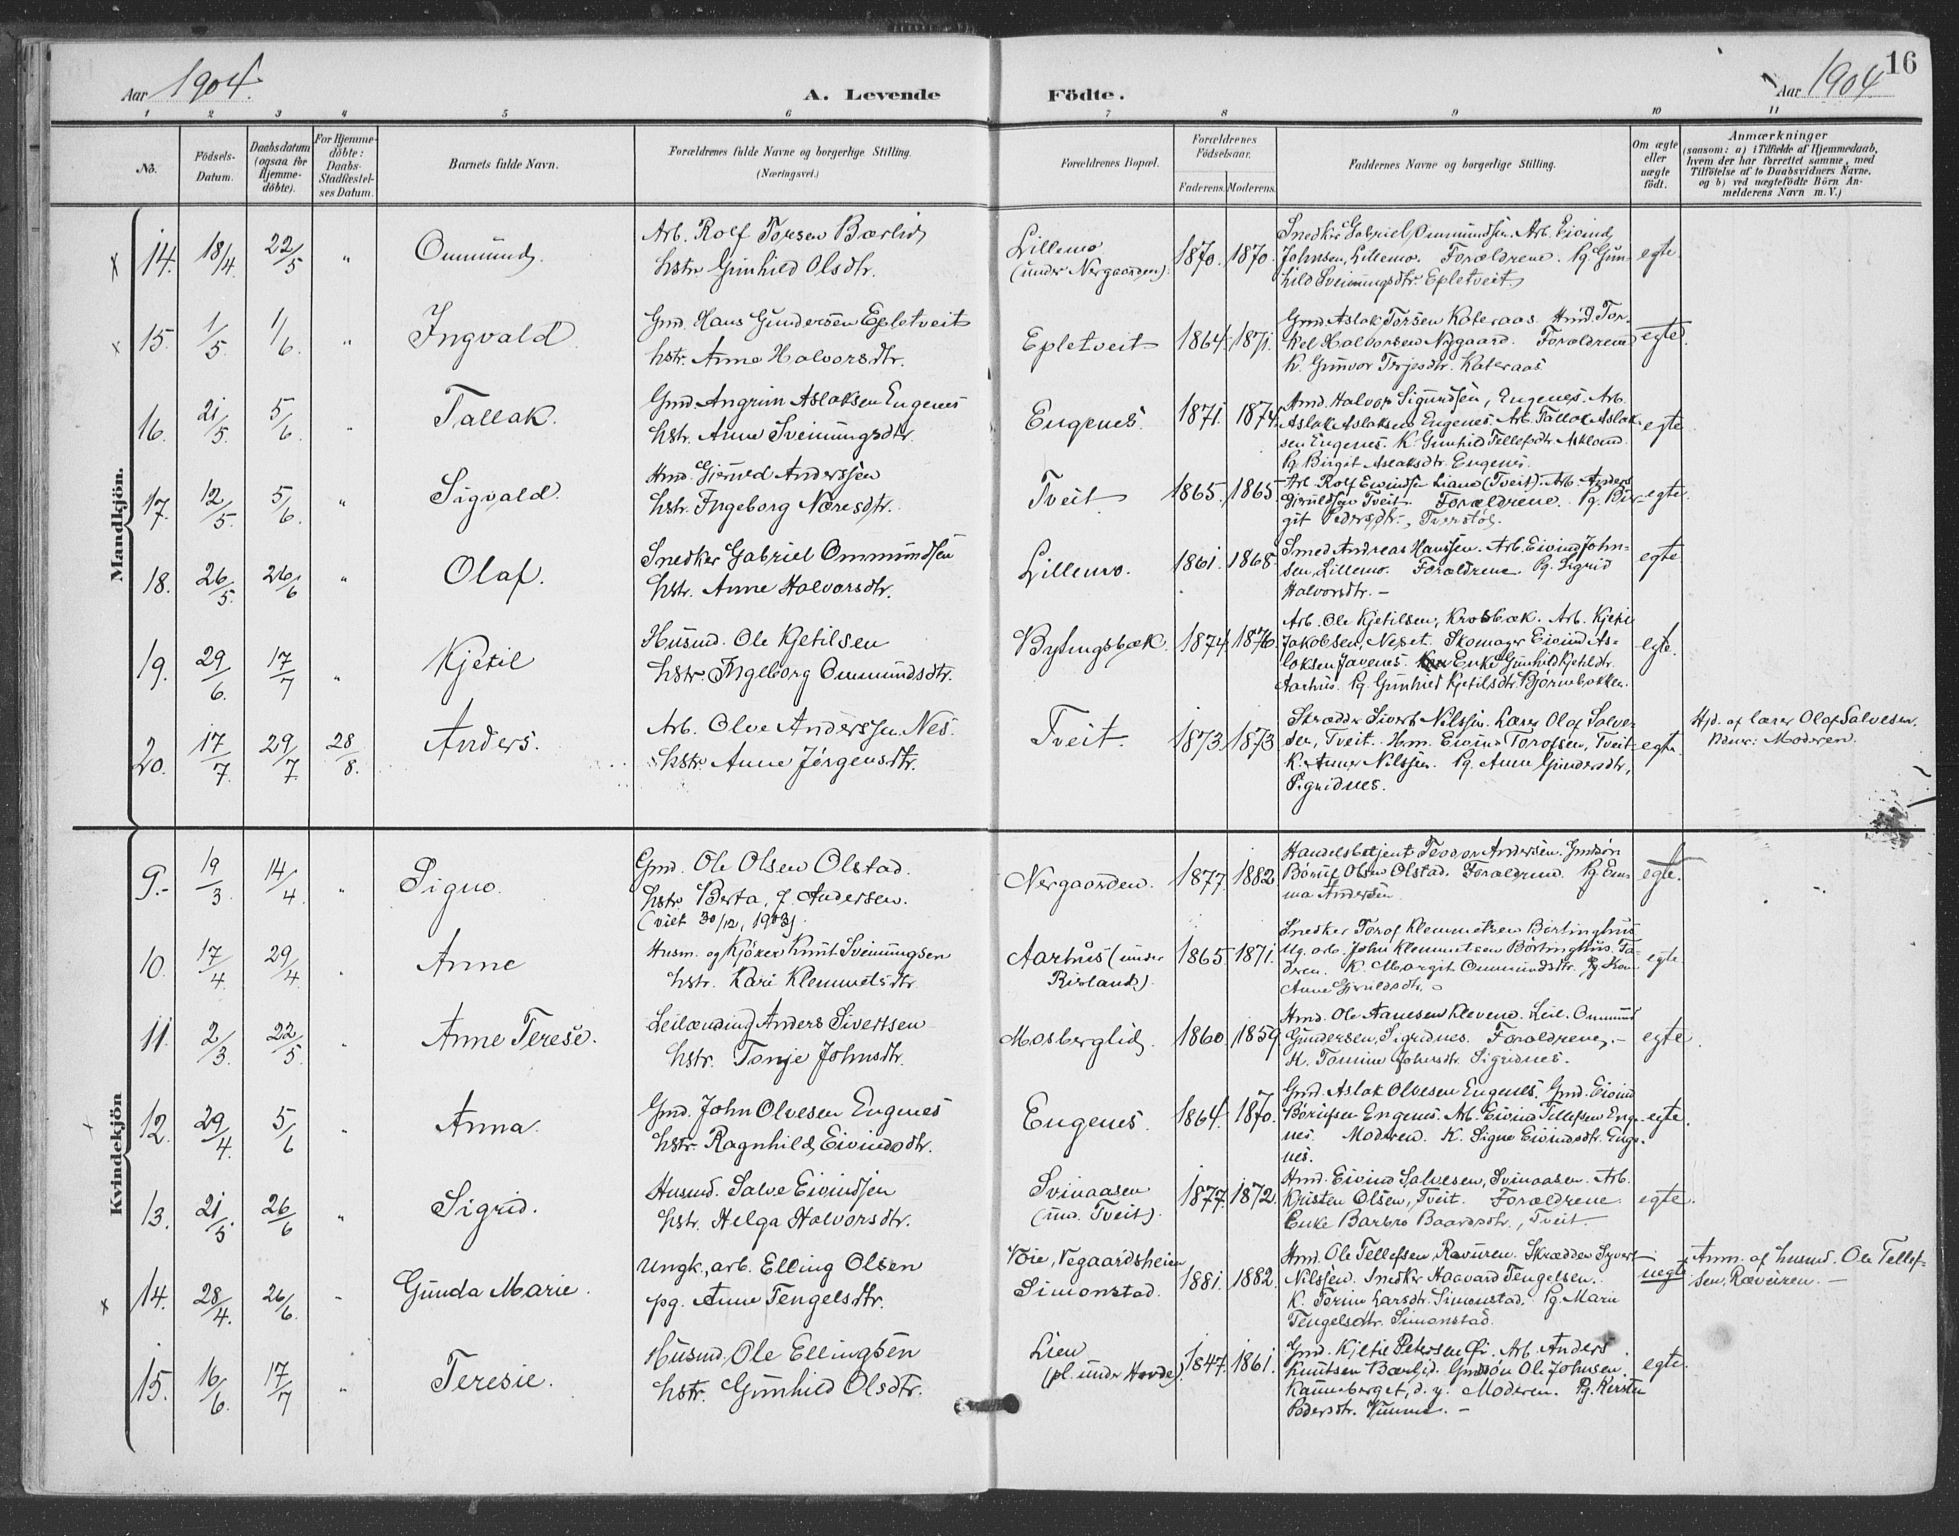 Aar 1904.
A. Levende Födte.
Aar 1904
16
1 2 3 4 5 6 7 8 9 10 11
No.
Födsels-Datum.
Daabsdatum (ogsaa for Hjemme-döbte).
For Hjemme-döbte: Daabs-Stadfæstel-ses Datum.
Barnets fulde Navn.
Forældrenes fulde Navne og borgerlige Stilling.
(Næringsvei.)
Forældrenes Bopæl.
Forældrenes Födselsaar.
Faderens. Moderens.
Faddernes Navne og borgerlige Stilling.
Om ægte eller uægte födt.
Anmærkninger
(saasom: a) i Tilfælde af Hjemmedaab, hvem der har forrettet samme, med Tilföielse af to Daabsvidners Navne, og b) ved uægtefödte Börn An-melderens Navn m. V.)
Mandkjön.
14. 18/4 22/5 " Ommund. Arb. Rolf Torsen Bærlid
hstr. Gunhild Olsdtr. Lillemo
(under Nergaarden). 1870. 1870. Snedker Gabriel Ommundsen. Arb. Eivind
Johnsen, Lillemo. Forældrene. Pg. Gun-
hild Sveinungsdtr. Epletveit egte.
15. 1/5 1/6 " Ingvald Gmd. Hans Gundersen Epletveit
hstr. Anne Halvorsdtr. Epletveit 1864. 1871. Gmd. Aslak Torsen Kateraas. Hmd. Tor-
kel Halvorsen Nygaard. Forældrene
K. Gunvor Terjesdtr. Kateraas egte.
16. 21/5 5/6 " Tallak. Gmd. Angrim Aslaksen Eugenes
hstr. Anne Sveinungsdtr. Eugenes. 1871. 1874. Hmd. Halvor Sigundsen, Eugenes. Arb.
Aslak Aslaksen Eugenes. Arb. Tallak Aslak-
sen Eugenes. K. Gunhild Tellefsdtr. Askland.
Pg. Birgit Aslaksdtr. Eugenes. egte
17. 12/5 5/6 " Sigvald Hmd. Gjeruld Anderssen
hstr. Ingeborg Næresdtr. Tveit 1865. 1865. Arb. Rolf Eivindsen Liane (Tveit). Arb. Anders
Gjeruldsen Tveit. Forældrene. Pg. Bir-
git Pedersdtr., egte.
18. 26/5 26/6 " Olaf. Snedker Gabriel Ommundsen
hstr. Anne Halvorsdtr. Lillemo. 1861. 1868. Smed Andreas Hanssen. Arb. Eivind John-
sen, Lillemo. Forældrene. Pg. Sigrid
Halvorsdtr. – egte
19. 29/6 17/7 " Kjetil Husmd. Ole Kjetilsen
hstr. Ingeborg Ommundsdtr. Bylingsbæk. 1874. 1876. Arb. Ole Kjetilsen, Krosbæk. Arb. Kjetil
Jakobsen, Nepet. Skomager Eivind As-
laksen Javenes. Enke Gunhild Kjetilsdtr.
Aarhus. Pg. Gunhild Kjetilsdtr. Bjørnebakken. egte.
20. 17/7 29/7 28/8. Anders. Arb. Olve Anderssen Nes.
hstr. Anne Jörgensdtr. Tveit. 1873. 1873 Skrædder Sivert Nilssen. Lærer Olaf Salve-
sen, Tveit. Hm. Eivind Torofsen, Tveit
K. Anne Nilssen. Pg. Anne Gundersdtr,
Sigridnes. egte Hjd. af lærer Olaf Salvesen.
Moderen.
Kvindekjön
9.- 19/3 14/4. " Signe. Gmd. Ole Olsen Olstad.
hstr. Berta, f. Andersen.
(viet 30/12, 1903). Nergaarden. 1877. 1882 Handelsbetjent Teodor Andersen. Gmdsøn
Börul Olsen Olstad. Forældrene. Pg. Em-
ma Andersen egte.
10. 17/4 29/4. " Anne Husm. og Kjöker Knut Sveinungsen
hstr. Kari Klemmetsdtr. Aarhus (under
Risland). 1865. 1871. Snedker Torof Klemmetsen Börlinghus
Ug. arb. John Klemmetsen Börlinghus. Fa-
dren. K. Margit Ommundsdtr. Pg. Kan-
Anne Gjeruldsdtr. – egte.
11. 2/3 22/5 Anne Terese. Leilænding Anders Sivertsen
hstr. Tonje Johnsdtr. Mosberglid. 1860. 1859 Hmd. Ole Aanesen Kleveno. Leil. Ommund
Gundersen, Sigridnes. Forældrene. –
K. Tomine Johnsdtr. Sigridnes. egte.
12. 29/4. 5/6 " Anna. Gmd. John Olvesen Eugenes
hstr. Ragnhild Eivindsdtr. Eugenes. 1864. 1870. Gmd. Aslak Olvesen Eugenes. Gmd. Eivind
Börulsen Eugenes. Arb. Eivind Tellefsen Euge-
nes. Moderen. K. Signe Eivindsdtr. Euge-
nes. egte.
13. 21/5 26/6 " Sigrid. Husmd. Salve Eivindsen
hstr. Helga Halvorsdtr. Svinaasen
(und. Tveit). 1877. 1872. Hmd. Eivind Salvesen, Svinaasen. Arb.
Kristen Olsen, Tveit. Forældrene
Enke Barbro Baardsdtr., Tveit egte.
14. 28/4. 26/6. " Gunda Marie. Ungk., arb. Elling Olsen
pg. Anne Tengelsdtr. Voie, Vegaardsheien
Simonstad. 1881. 1882. Hmd. Ole Tellefsen, Ravuren. Skrædder Syvert
Nilssen. Snedker Haavard Tengelsen.
K. Terine Larsdtr. Simonstad. Pg. Marie
Tengelsdtr. Simonstad. uegte Anm. af husmd. Ole Tellef-
sen, Ræveuren. –
15. 16/6 17/7 " Teresie. Husmd, Ole Ellingsen
hstr. Gunhild Olsdtr. Lien
(pl. under Hovde). 1847. 1861. Gmd. Kjetil Petersen Öi. Arb. Anders
Knutsen Bærlid. Gmdsøn Ole Johnsen
Kanneberget, d. y. Moderen. Pg. Kirsten
Pedersdtr. Vimme. – egte.